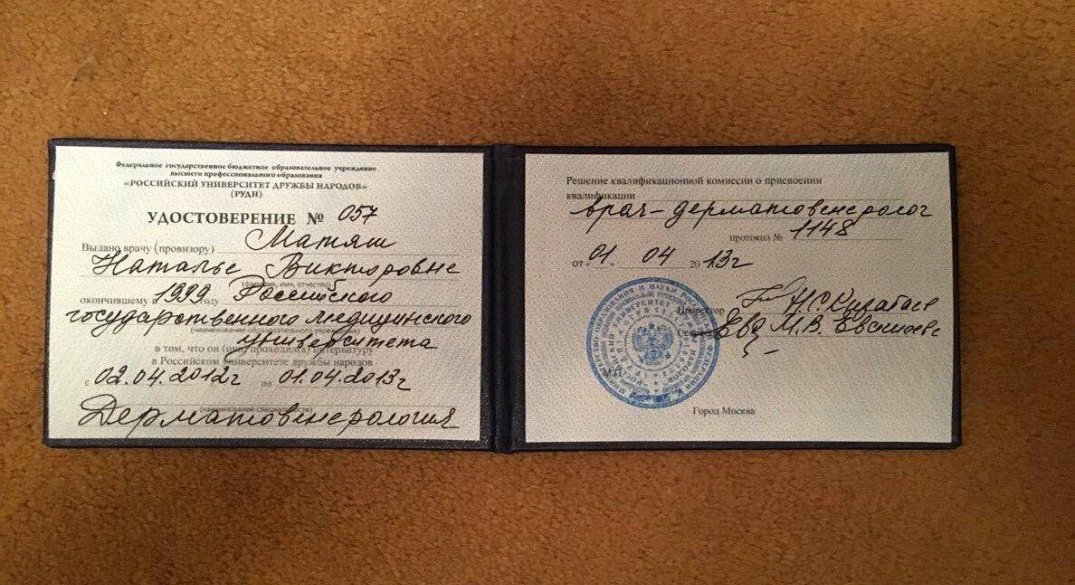 Федеральное государственное бюджетное образовательное учреждение
высшего профессионального образования
«РОССИЙСКИЙ УНИВЕРСИТЕТ ДРУЖБЫ НАРОДОВ»
(РУДН)
УДОСТОВЕРЕНИЕ № 057
Выдано врачу (провизору) Матяш
Наталье Викторовне
(фамилия, имя, отчество)
окончившему в 1999 году Российского
государственного медицинского
(наименование образовательного учреждения)
университета
в том, что он (она) проходил(а) интернатуру
в Российском университете дружбы народов
с 02.04.2012г по 01.04.2013г
(наименование специальности)
Дерматовенерология
Решение квалификационной комиссии о присвоении
квалификации
врач-дерматовенеролог
протокол № 1148
от «01» 04 2013г
Проректор Н.С.
М.В.
М.П.
Город Москва